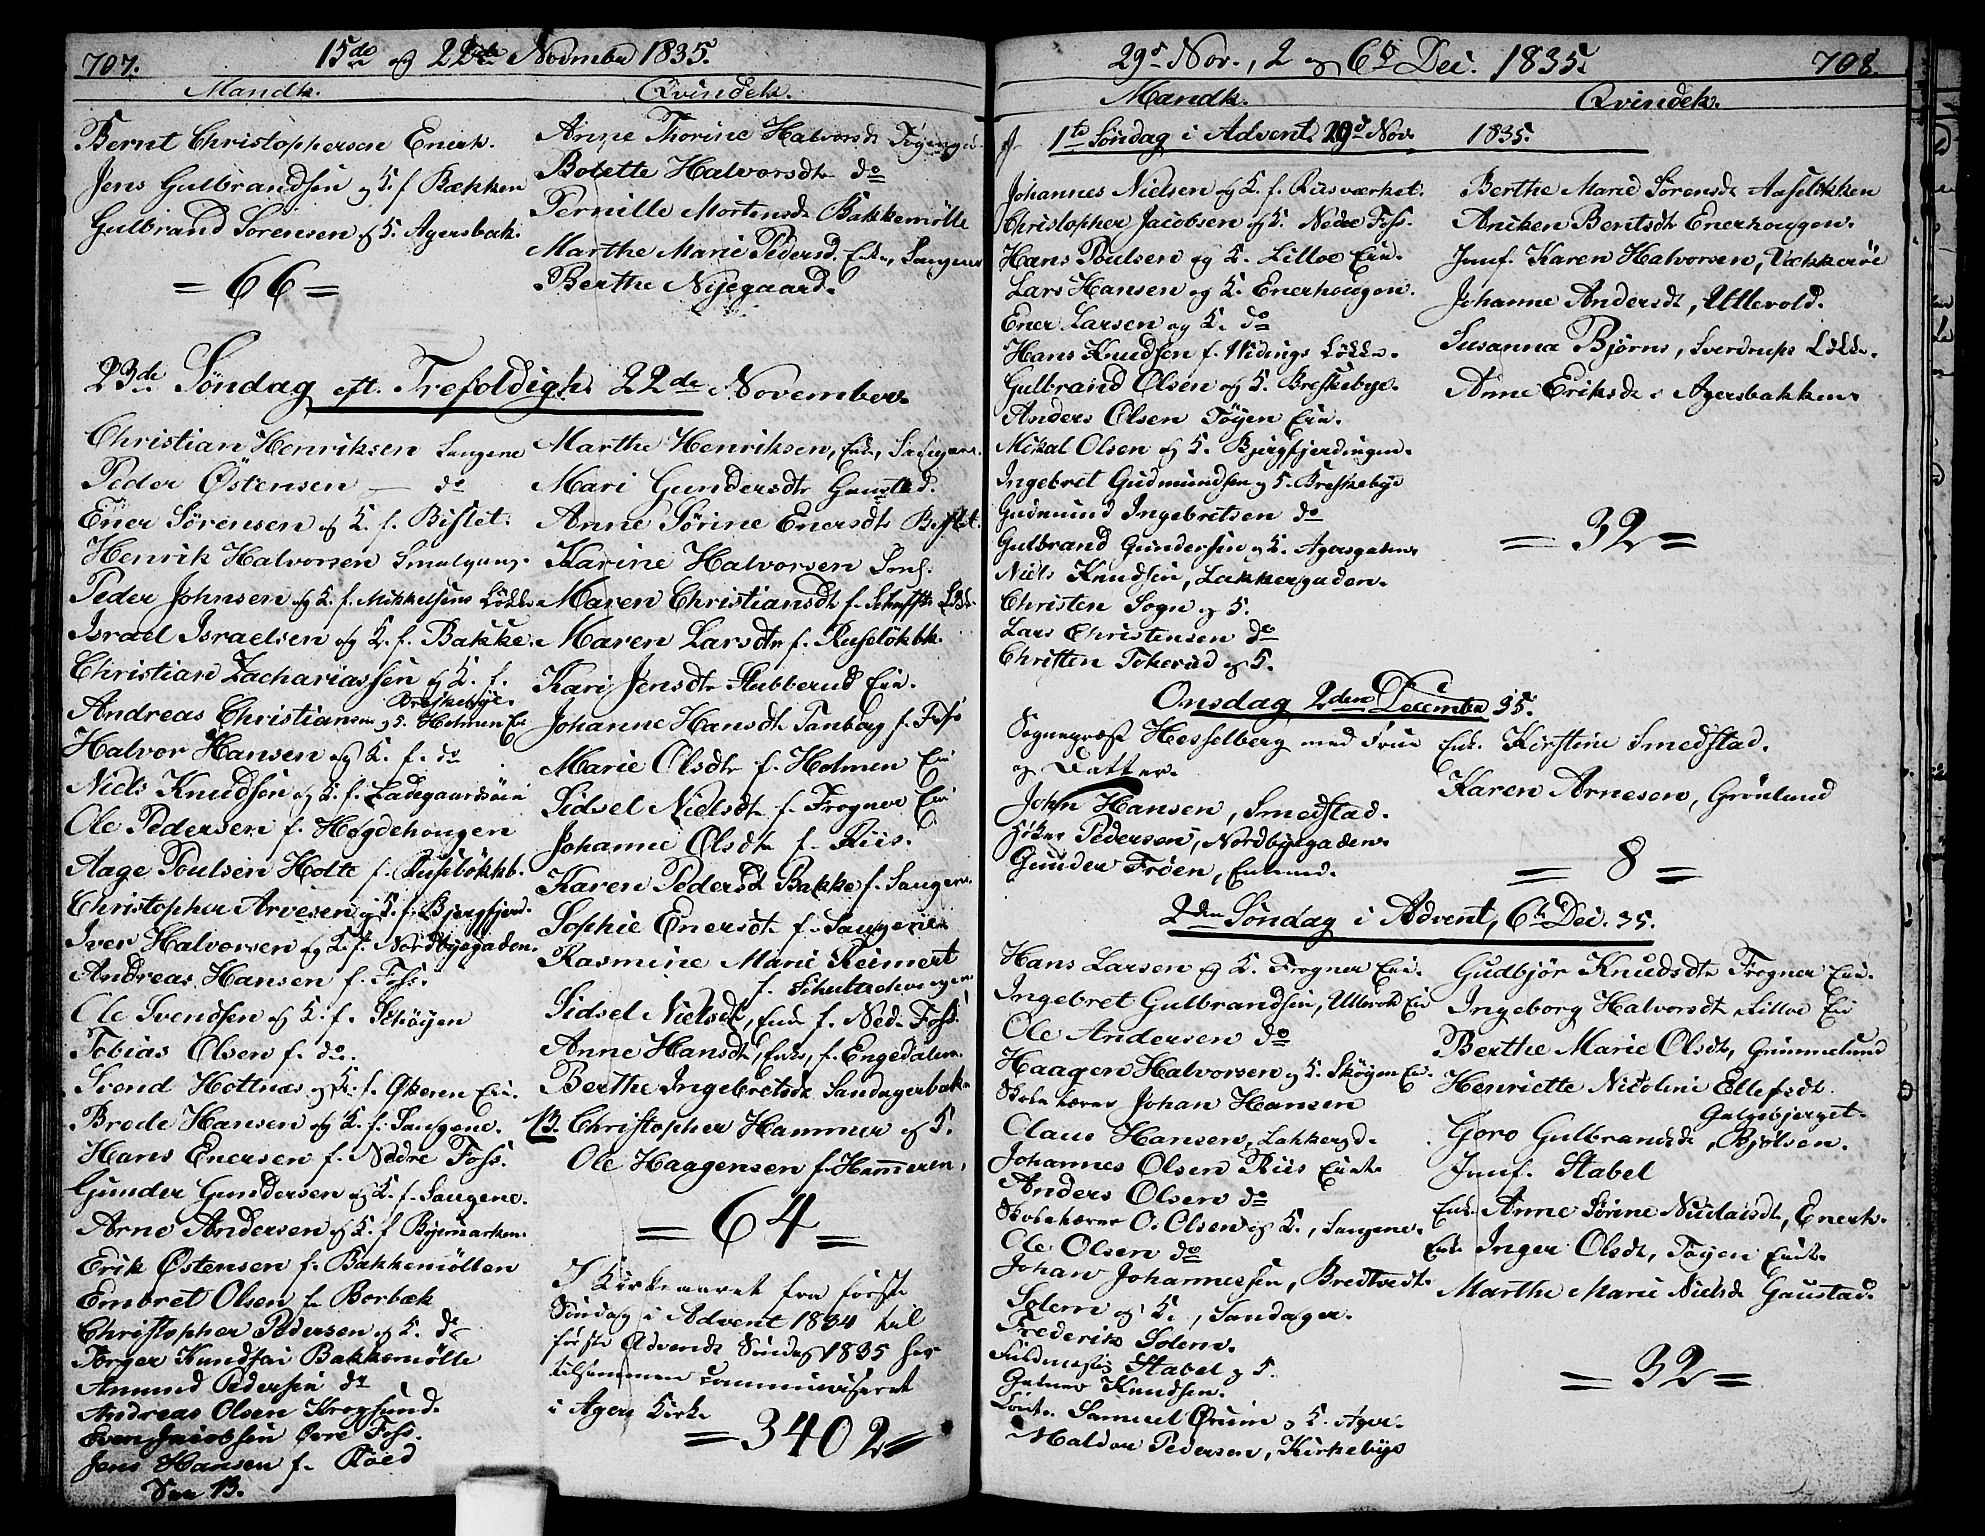 707.
15de og 22de November 1835.
Mandk.
Qvindek.
Bernt Christophersen Enerh.
Jens Gulbrandsen og K. f. Bækken
Gulbrand Sørensen og K. Agersbak.
= 66 =
Anne Thorine Halvorsdt
Bolette Halvorsdtr do
Pernille Mortensdt Bakkemølle
Marthe Marie Pedersd. Enke, Saugene
Berthe Nygaard.
23de Søndag eft. Trefoldigh. 22de November
Christian Henriksen Saugene
Peder Østensen — do
Ener Sørensen og K. f. Bislet.
Henrik Halvorsen Smalgang.
Peder Johnsen og K. f. Mikkelsens Løkke
Israel Israelsen og K. f. Bakke.
Christian Zachariassen og K. f.
Briskebye.
Andreas Christiansen og K. Holmen Ei
Halvor Hansen og K. f. do
Niels Knudsen og K. f. Ladegaardsøen
Ole Pedersen f. Høgdehougen
Aage Poulsen Holte f. Ruseløkkb.
Christopher Arvesen og K. f. Bjergfjerd.
Iver Halvorsen og K. f. Nordbyegaden.
Andreas Hansen f. Foss.
Ole Svendsen og K. f. Skøyen
Tobias Olsen f. do.
Svend Hottnæs og K. f. Økeren Eie.
Brede Hansen og K. f. Saugene.
Hans Enersen f. Nedre Foss.
Gunder Gundersen og K. f. Saugene.
Arne Andersen og K. f. Byemarken.
Erik Østensen f. Bakkemøllen
Embret Olsen f. Borbæk
Christopher Pedersen og K. do
Torger Knudsen Bakkemølle
Amund Pedersen do
Andreas Olsen Krogsund.
Even Jacobsen Øvre Foss.
Jens Hansen f. Røed
See B.
Marthe Henriksen, Enke, Saugene.
Mari Gundersdtr Gaustad.
Anne Sørine Enersdtr Bislet.
Karine Halvorsen
Maren Christiansdt f.
Maren Larsdtr f. Ruseløkbk.
Kari Jensdtr Stubberud Eie.
Johanne Hansdt Tanberg f. Foss
Marie Olsdtr f. Holmen Ei
Sidsel Nielsdt f. Frogner Ei
Johanne Olsdtr f. Riis.
Karen Pedersdt Bakke f. Saugene.
Sophie Enersdt f. Saugene
Rasmine Marie Reimert
f. Schultzehougen
Sidsel Nielsdt, Enke f. Nedr. Foss
Anne Hansdt, Enke, f. Engedalen.
Berthe Ingebretsdt Sandagerbak.
B. Christopher Hammer og K.
Ole Haagensen f. Hammeren,
= 64 =
I Kirkeaaret fra første
Søndag i Advent 1834 til
første Advents Søndag 1835 har
tilsammen communiceret
i Agers Kirke
= 3402 =
29d Nov., 2 og 6d Dec. 1835.
708.
Mandk.
Qvindek.
1te Søndag i Advent 29d Nov. 1835.
Johannes Nielsen og K. f. Riisværket.
Christopher Jacobsen og K. Nedre Foss.
Hans Poulsen og K. Lilloe Eie.
Lars Hansen og K. Enerhougen.
Ener Larsen og K. do
Hans Knudsen f. Løkke.
Gulbrand Olsen og K. Breskebye.
Anders Olsen Tøyen Eie.
Mikal Olsen og K. Bjergfjerdingen.
Ingebret Gudmundsen og K. Breskebye
Gudmund Ingebretsen do
Gulbrand Gundersen og K. Agersgaden
Niels Knudsen, Lakkergaden.
Christen Sogn og K.
Lars Christensen do
Christen Tokerud og K.
Berthe Marie Sørensdt Aaseløkken
Aniken Berntsdt Enerhougen.
Jomf. Karen Halvorsen, Vækkerøe
Johanne Andersdt, Ullevold.
Susanna Bjørns, Sverdrups Løkke.
Anne Eriksdt. Agersbakken
= 32 =
Onsdag 2den December 35.
Sognepræst Hesselberg med Frue
og Datter.
John Hansen, Smedstad.
Pedersen, Nordbyegaden
Gunder Frøen,
Enk. Kirstine Smedstad.
Karen Arnesen, Grønlund
= 8 =
2den Søndag i Advent, 6te Dec. 35.
Hans Larsen og K. Frogner Eie.
Ingebret Gulbrandsen, Ullevold Eie
Ole Andersen do
Haagen Halvorsen og K. Skøyen Ei.
Skolelærer Johan Hansen
Claus Hansen, Lakkergd.
Johannes Olsen Riis
Anders Olsen do
Skolelærer O. Olsen og K., Saugene.
Ole Olsen do
Johan Johannessen, Bredtvedt.
Solem og K., Sandager.
Frederik Solem.
Stabel og K.
Knudsen.
Samuel Ørum og K. Ager.
Haldor Pedersen, Kirkebye
Gudbjør Knudsdtr Frogner Eie.
Ingeborg Halvorsdt Lilloe Eie
Berthe Marie Olsdt, Grimmelund
Henriette Nicoline Ellefsdt.
Galgebjerget.
Goro Gulbrandsdt, Bjølsen.
Jomf. Stabel
Enk. Anne Sørine Nicolaisdt, Enerh.
Enk. Inger Olsdt, Tøyen
Marthe Marie Nielsd. Gaustad.
= 32 =